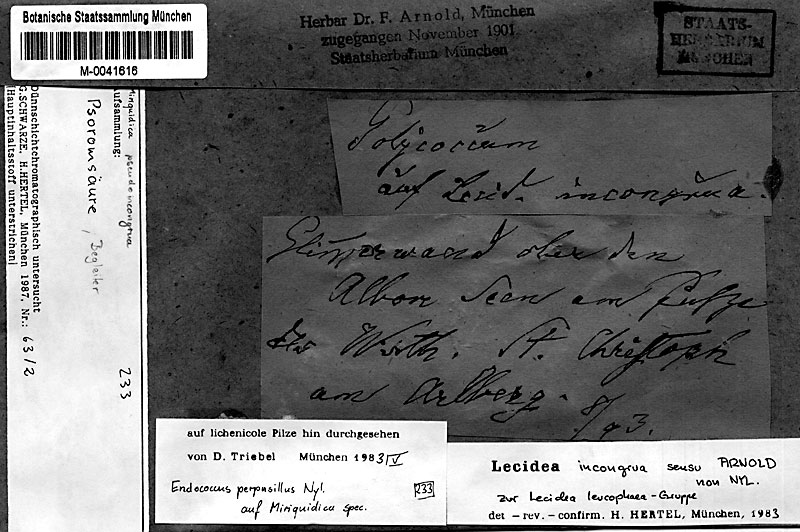 Botanische Staatssammlung München
M-0041616
Herbar Dr. F. Arnold, München
zugegangen November 1901
Staatsherbarium München
STAATS-
HERBARIUM
MÜNCHEN
Polycoccum
auf Lecid. incongrua.
Glimmerwand ober den
Albon Seen am Fusse
des Wirth. St. Christoph
am Arlberg. 8/93.
Miriquidica pseudoincongrua
Aufsammlung:
Psoromsäure, Begleiter
233
Dünnschichtchromatographisch untersucht
G.SCHWARZE, H.HERTEL, München 1987, Nr.: 63/2
(Hauptinhaltsstoff unterstrichen)
auf lichenicole Pilze hin durchgesehen
von D. Triebel München 1983 IV
Endococcus perpusillus Nyl.
auf Miriquidica spec.
233
Lecidea incongrua sensu ARNOLD
non NYL.
zur Lecidea leucophaea-Gruppe
det – rev. – confirm. H. HERTEL, München, 1983